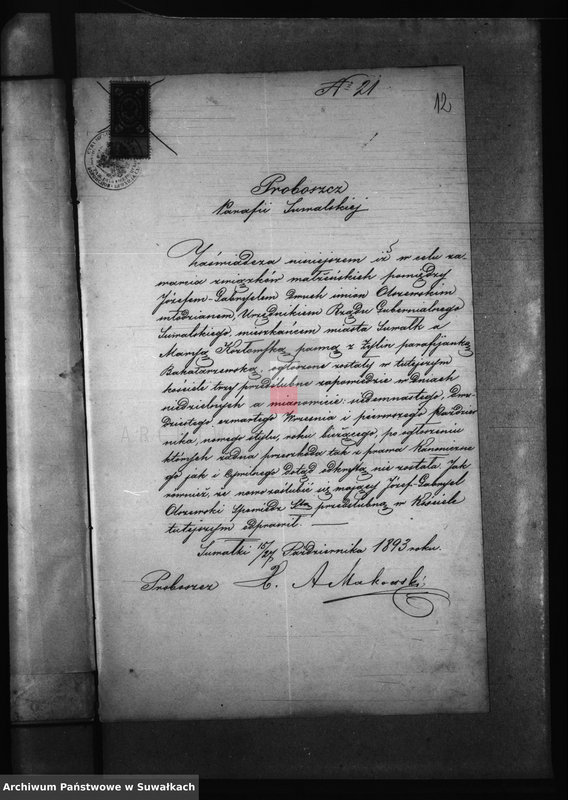 № 21
12
Proboszcz
Parafii Suwalskiej
Zaświadcza niniejszem iż w celu za-
warcia związków małżeńskich pomiędzy
Józefem-Gabryelem dwuch imion Olszewskim
młodzianem, Urzędnikiem Rządu Gubernialnego
Suwalskiego mieszkańcem miasta Suwałk a
Maryą Kozłowską panną z Zylin parafijanką
Bakałarzewską ogłoszone zostały w tutejszym
kościele trzy przedślubne zapowiedzie w Dniach
niedzielnych a mianowicie: siedemnastego, dwu-
dziestego czwartego Września i pierwszego Paździer-
nika, nowego stylu, roku bieżącego, po ogłoszeniu
których żadna przeszkoda tak z prawa Kanoniczne-
go jak i Cywilnego dotąd odkrytą nie została. Jak
również, że nowozaślubić się mający Józef-Gabryel
Olszewski Spowiedź Stą przedślubną w Kościele
tutejszym odprawił. —
Suwałki 15/27 Października 1893 roku.
Proboszcz X. A Makowski
Archiwum Państwowe w Suwałkach